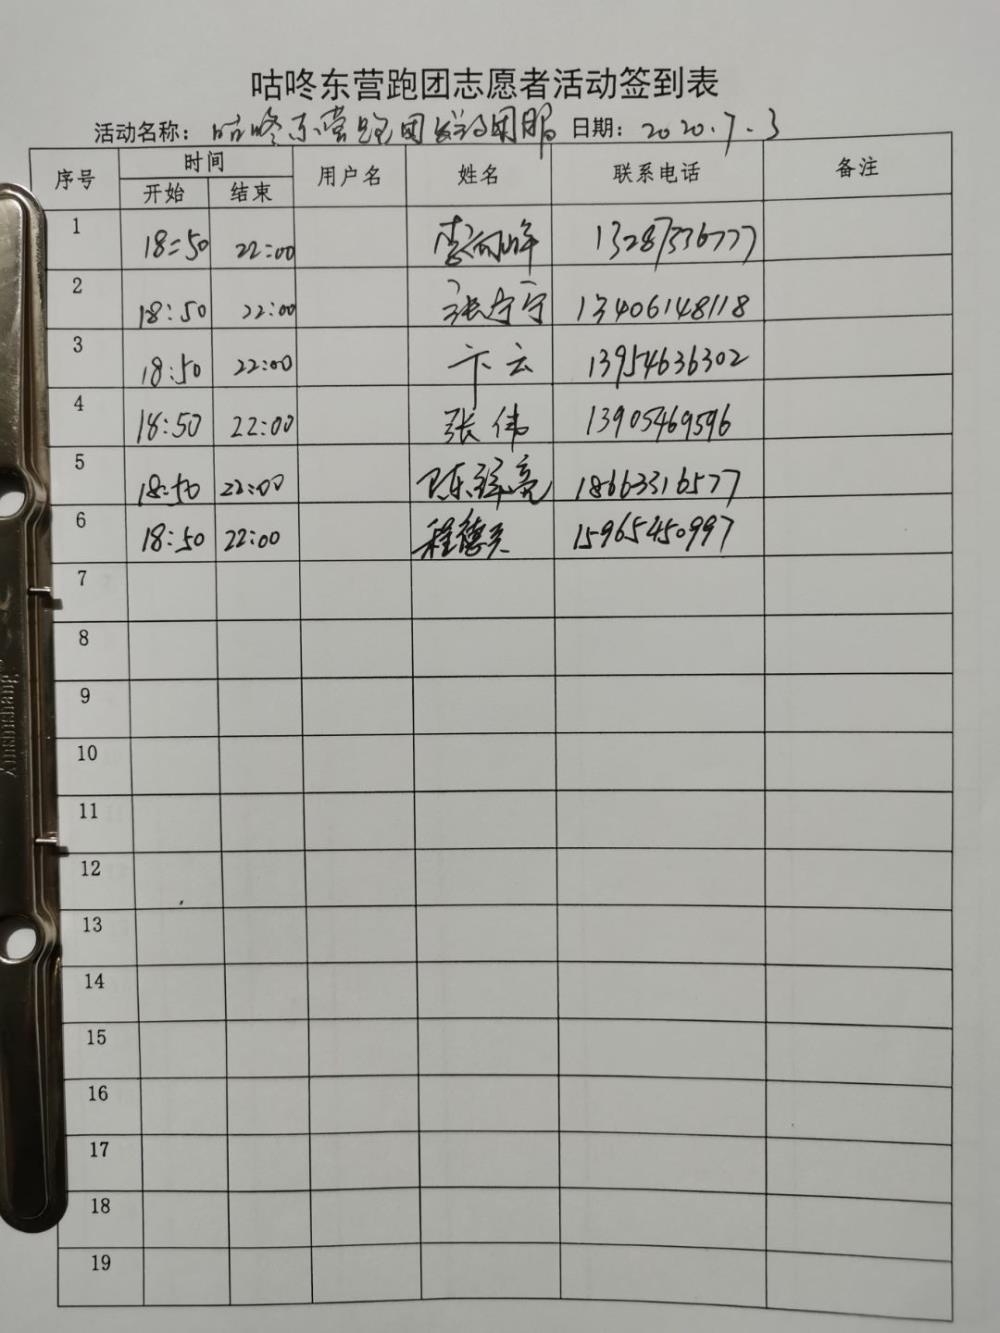 咕咚东营跑团志愿者活动签到表
活动名称: 咕咚东营跑团 团服 日期: 2020.7.3
序号 时间 用户名 姓名 联系电话 备注
开始 结束
1 18:50 22:00 李 峰 13287336777
2 18:50 22:00 张宁宁 13406148118
3 18:50 22:00 卞云 13954636302
4 18:50 22:00 张伟 13905469596
5 18:50 22:00 陈 亮 18663316577
6 18:50 22:00 程德 15965450997
7
8
9
10
11
12
13
14
15
16
17
18
19